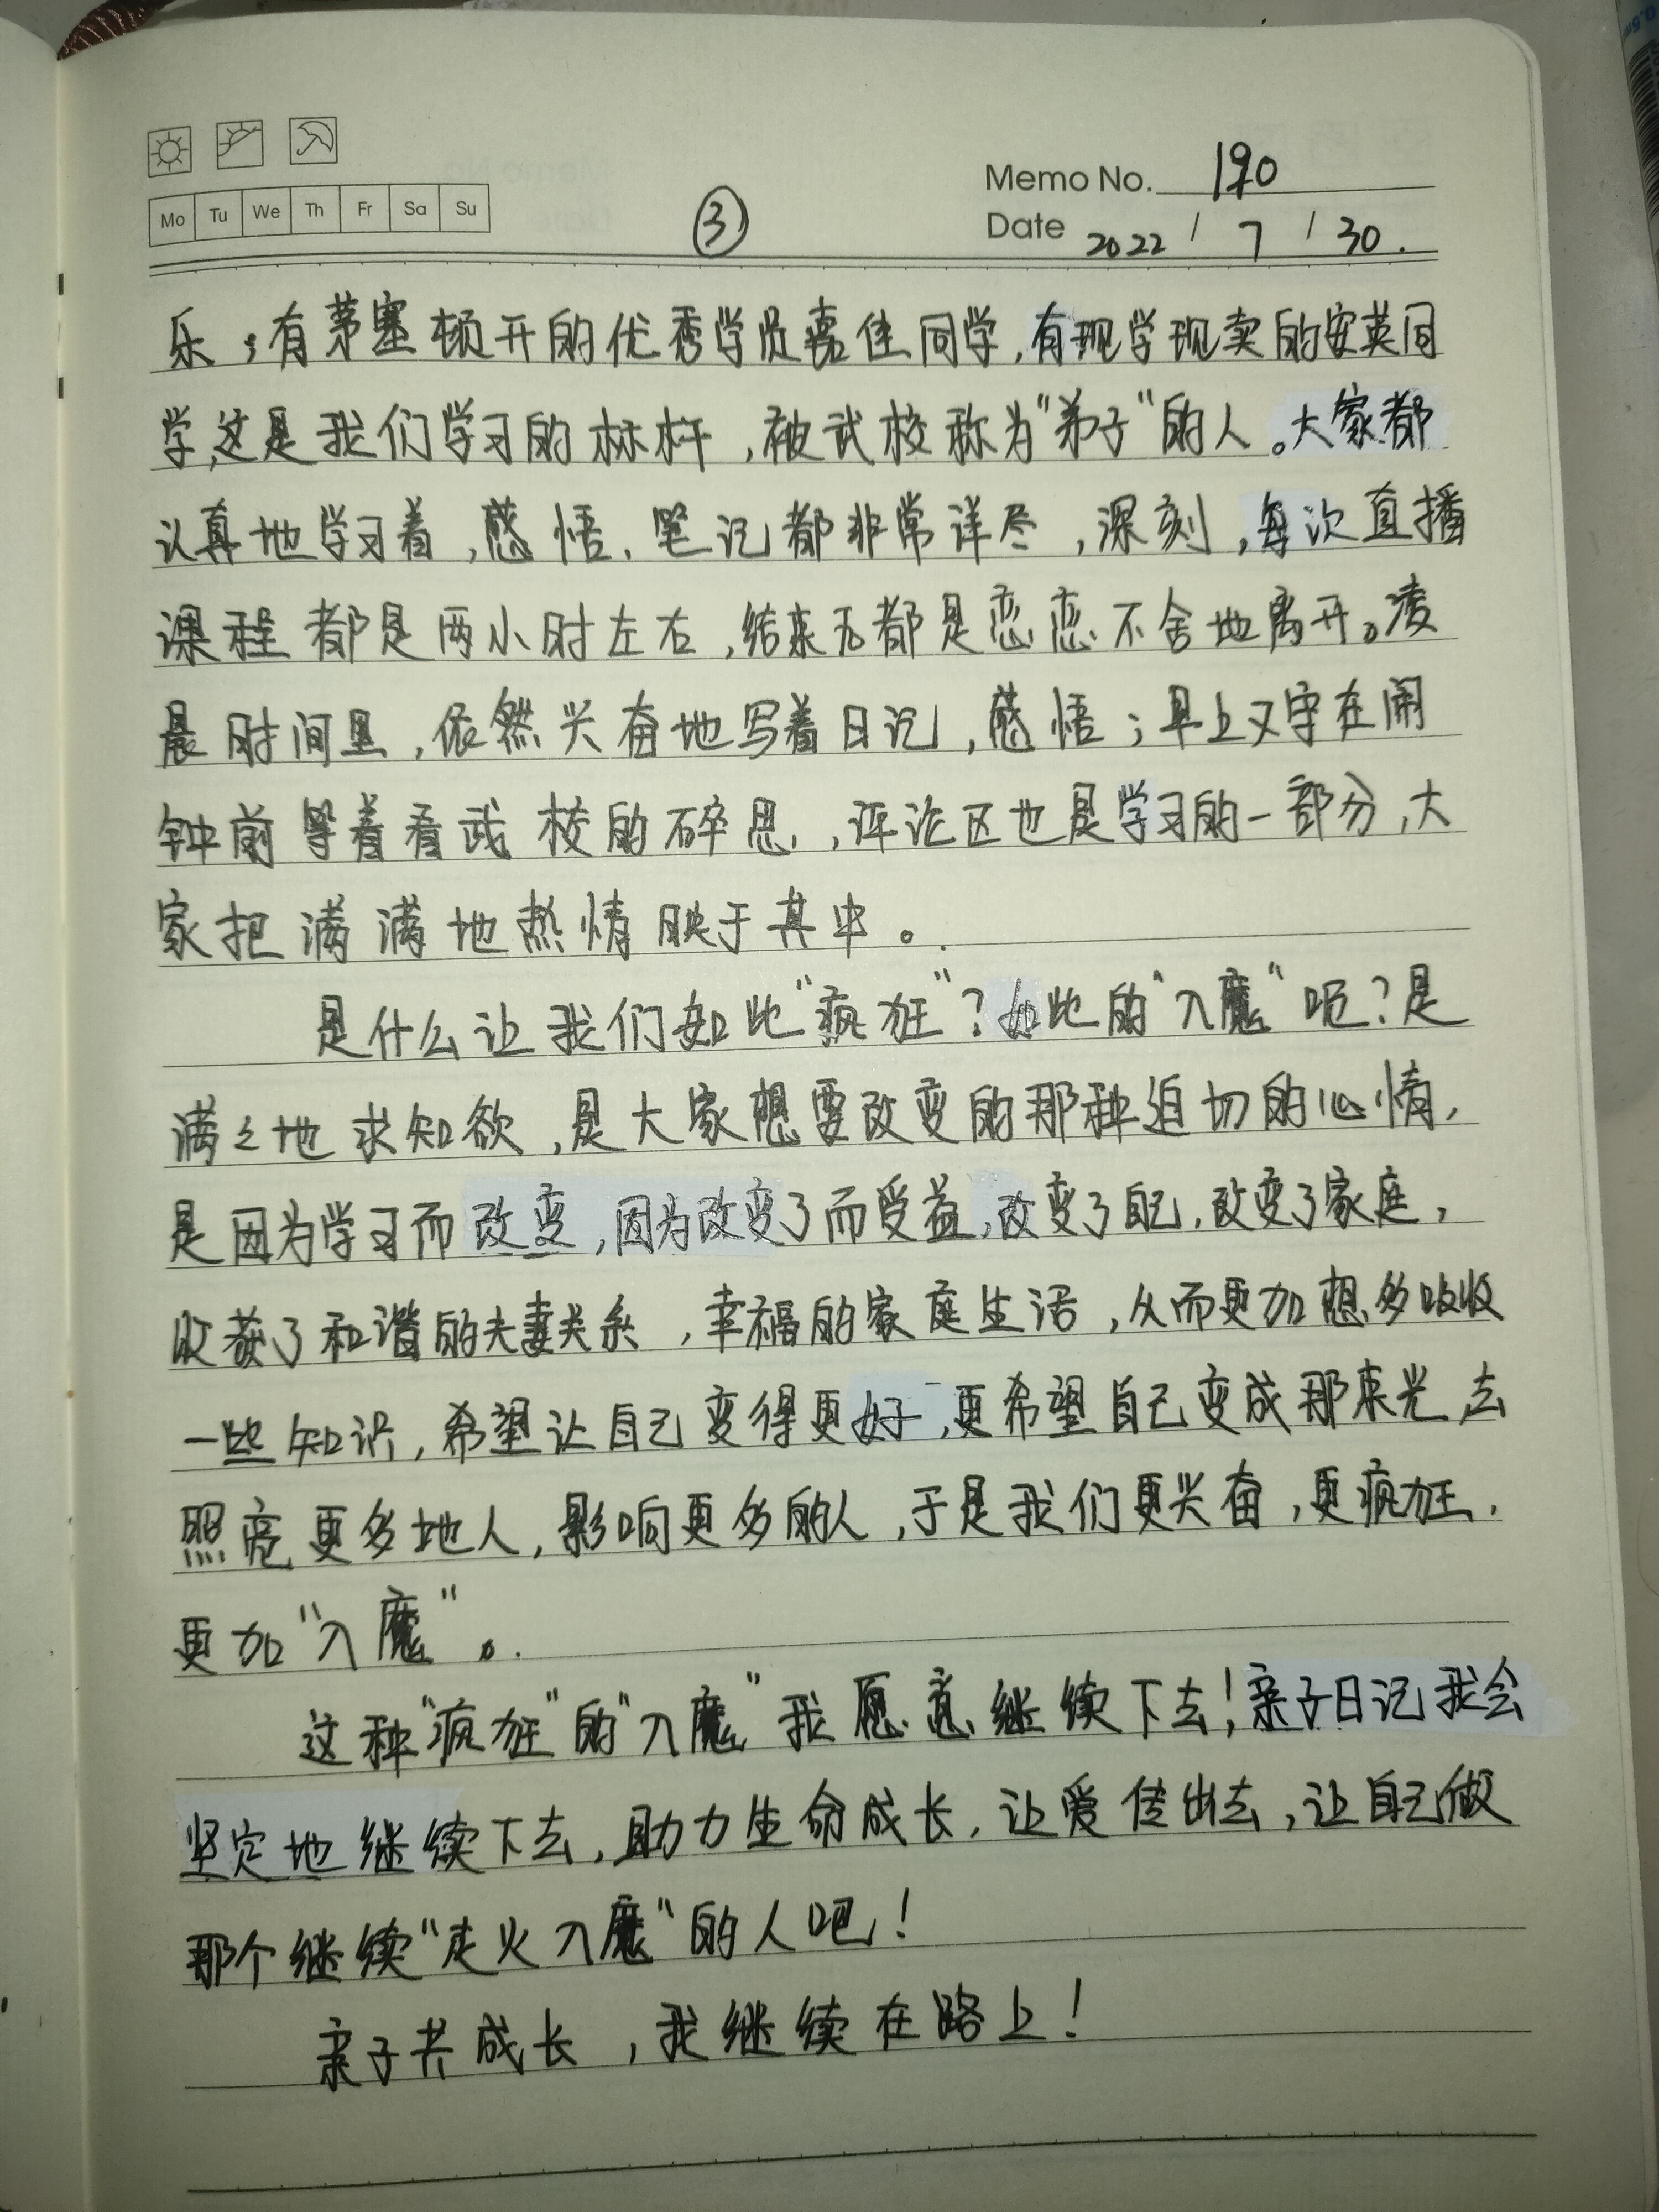 Memo No. 190
Mo Tu We Th Fr Sa Su
③
Date 2022 / 7 / 30.
乐；有茅塞顿开的优秀学员嘉佳同学，有现学现卖的安英同
学，这是我们学习的标杆，被武校称为“弟子”的人。大家都
认真地学习着，感悟、笔记都非常详尽，深刻，每次直播
课程都是两小时左右，结束后都是恋恋不舍地离开。凌
晨时间里，依然兴奋地写着日记，感悟；早上又守在闹
钟前等着看武校的碎思，评论区也是学习的一部分，大
家把满满地热情映于其中。
是什么让我们如此“疯狂”？如此的“入魔”呢？是
满々地求知欲，是大家想要改变的那种迫切的心情，
是因为学习而改变，因为改变了而受益，改变了自己，改变了家庭，
收获了和谐的夫妻关系，幸福的家庭生活，从而更加想多吸收
一些知识，希望让自己变得更好，更希望自己变成那束光，去
照亮更多地人，影响更多的人，于是我们更兴奋，更疯狂，
更加“入魔”。
这种“疯狂”的“入魔”我愿意继续下去！亲子日记我会
坚定地继续下去，助力生命成长，让爱传出去，让自己做
那个继续“走火入魔”的人吧！
亲子共成长，我继续在路上！